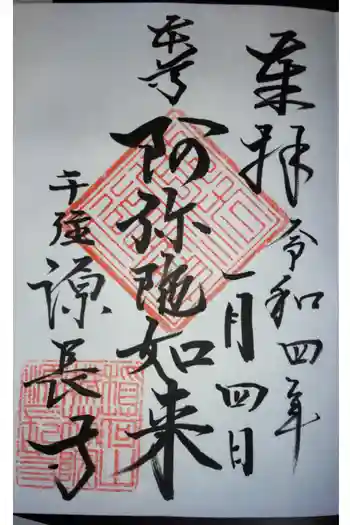 奉拝
令和四年
一月四日
本尊
阿弥陀如来
千強
源長寺